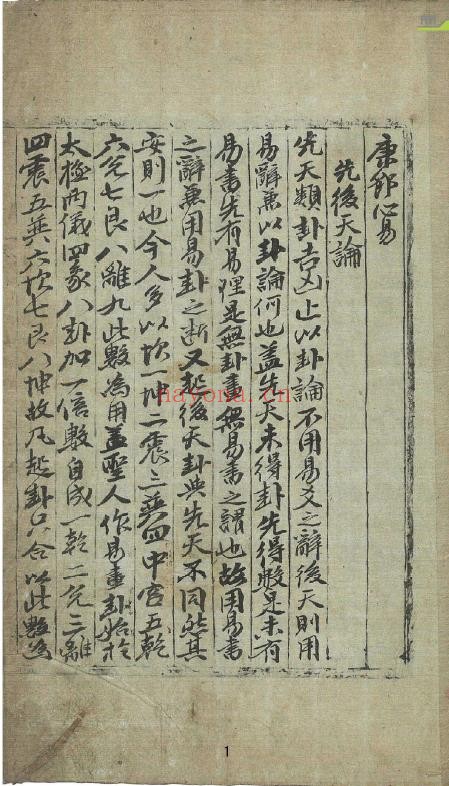 康節心易
先後天論
先天類卦吉凶止以卦論不用易爻之辭後天則用
易辭兼以卦論何也盖先天未得卦先得數是未有
易書先有易理是無卦畫無易書之謂也故用易書
之辭兼用易卦之断又起後天卦與先天不同然其
安則一也今人多以坎一坤二震三巽四中宫五乾
六兌七艮八離九此數為用盖聖人作易畫卦始於
太極两儀四象八卦加一倍數自成一乾二兌三離
四震五巽六坎七艮八坤故凡起卦只合以此數為
hayona.cn
1